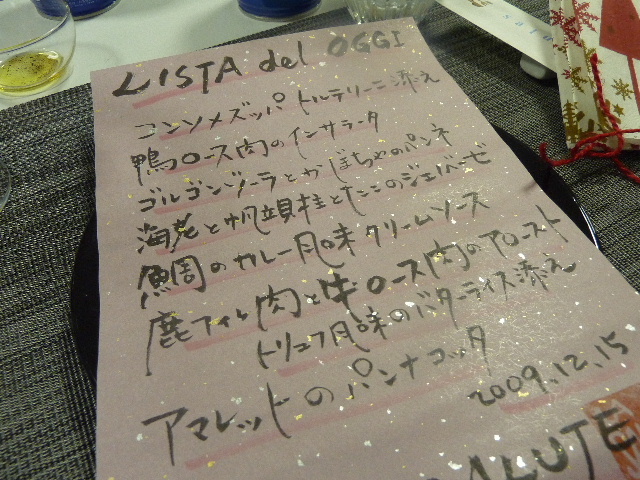 LISTA del OGGI
コンソメズッパ トルテリーニ添え
鴨ロース肉のインサラータ
ゴルゴンゾーラとかぼちゃのペンネ
海老と帆立貝柱とたこのジェノベーゼ
鯛のカレー風味クリームソース
鹿フィレ肉と牛ロース肉のアロースト
トリュフ風味のバターライス添え
アマレットのパンナコッタ
2009.12.15
SALUTE